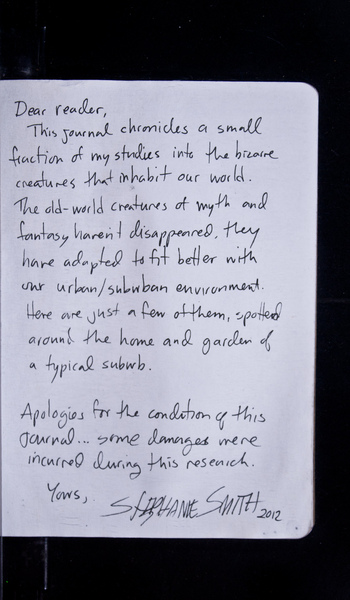 Dear reader,
This journal chronicles a small
fraction of my studies into the bizarre
creatures that inhabit our world.
The old-world creatures of myth and
fantasy haven't disappeared, they
have adapted to fit better with
our urban/suburban environment.
Here are just a few of them, spotted
around the home and garden of
a typical suburb.
Apologies for the condition of this
journal... some damages were
incurred during this research.
Yours,
STEPHANIE SMITH 2012